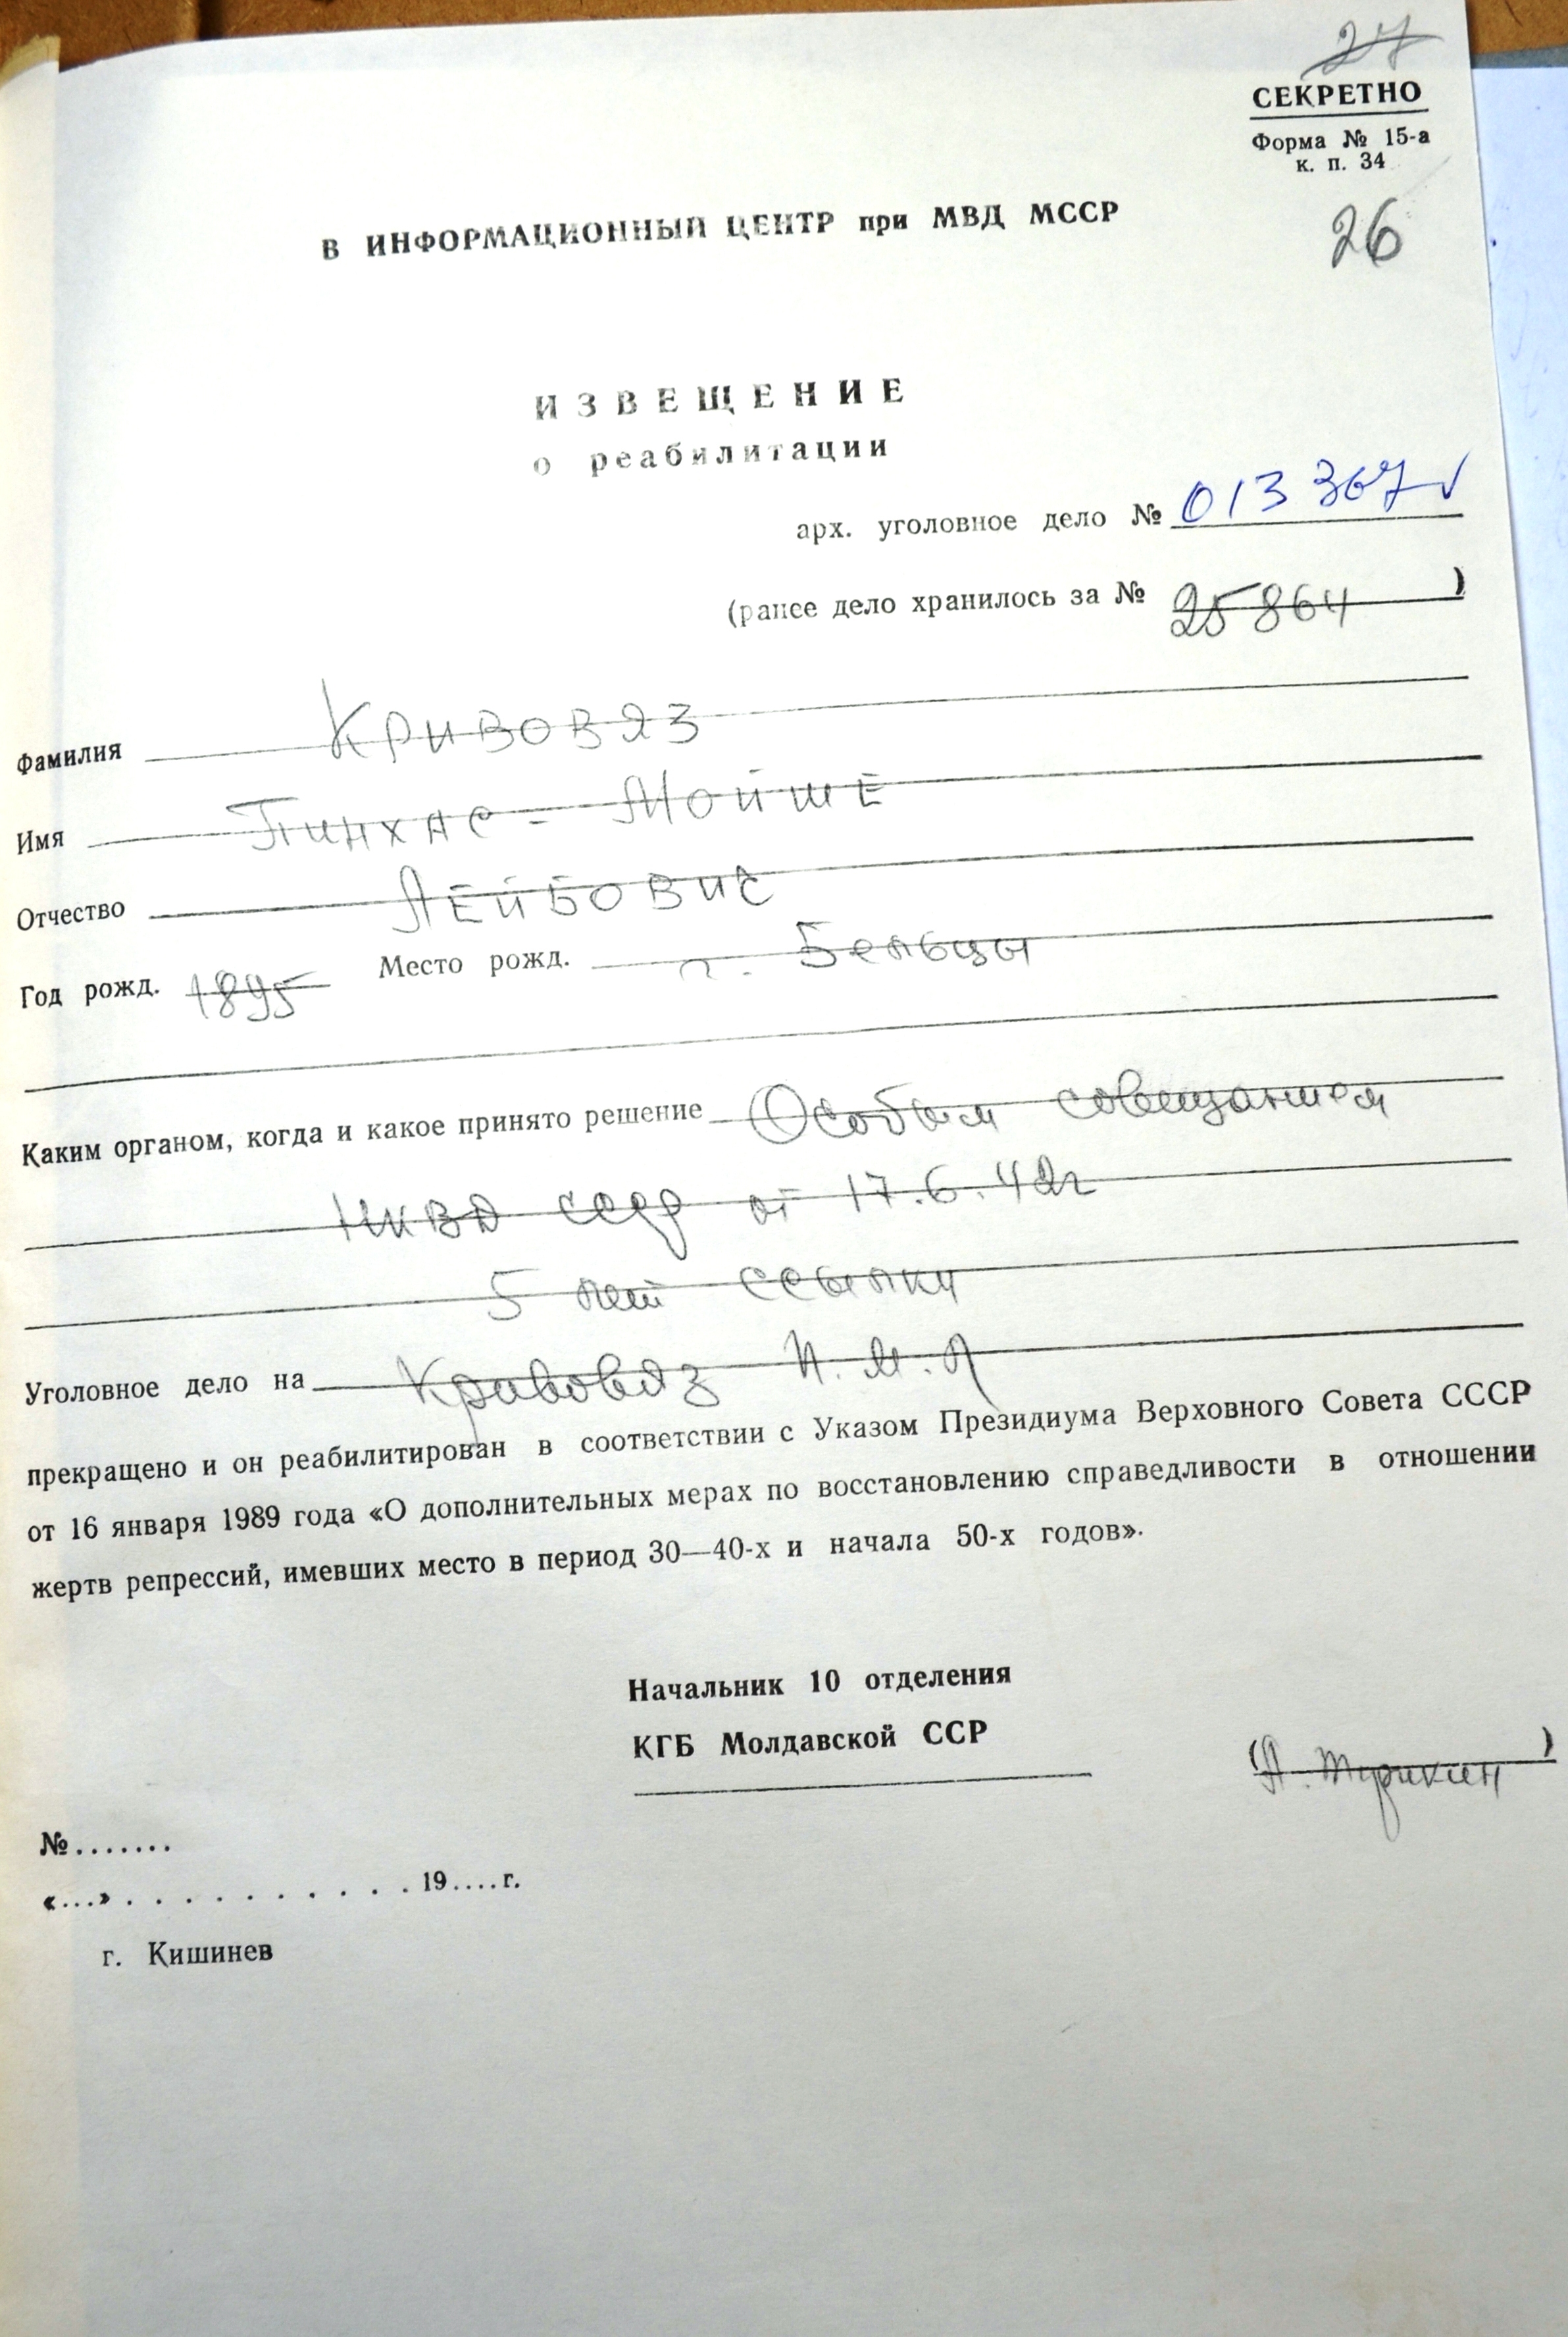 27
СЕКРЕТНО
Форма № 15-а
к. п. 34
26
В ИНФОРМАЦИОННЫЙ ЦЕНТР при МВД МССР
ИЗВЕЩЕНИЕ
о реабилитации
арх. уголовное дело № 013367 ✓
(ранее дело хранилось за № 25864 )
Фамилия Кривовяз
Имя Пинхас-Мойше
Отчество Лейбовис
Год рожд. 1895 Место рожд. г. Бельцы
Каким органом, когда и какое принято решение Особым совещанием
НКВД СССР от 17.6.42г
5 лет ссылки
Уголовное дело на Кривовяз П.М.Л
прекращено и он реабилитирован в соответствии с Указом Президиума Верховного Совета СССР
от 16 января 1989 года «О дополнительных мерах по восстановлению справедливости в отношении
жертв репрессий, имевших место в период 30—40-х и начала 50-х годов».
Начальник 10 отделения
КГБ Молдавской ССР
(А. )
№.......
«...» . . . . . . . . . . . 19....г.
г. Кишинев